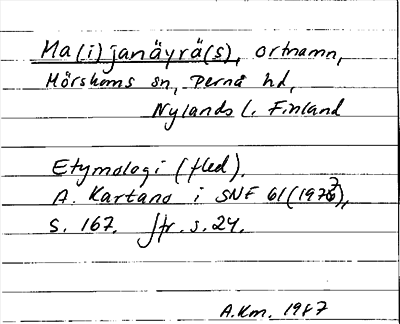 Ma(i)janäyrä(s), ortnamn,
Mörskoms sn, Pernå hd,
Nylands l. Finland
Etymologi (fled).
A. Kartano i SNF 61 (1973),
s. 167. Jfr. s. 24.
A.Km. 1987